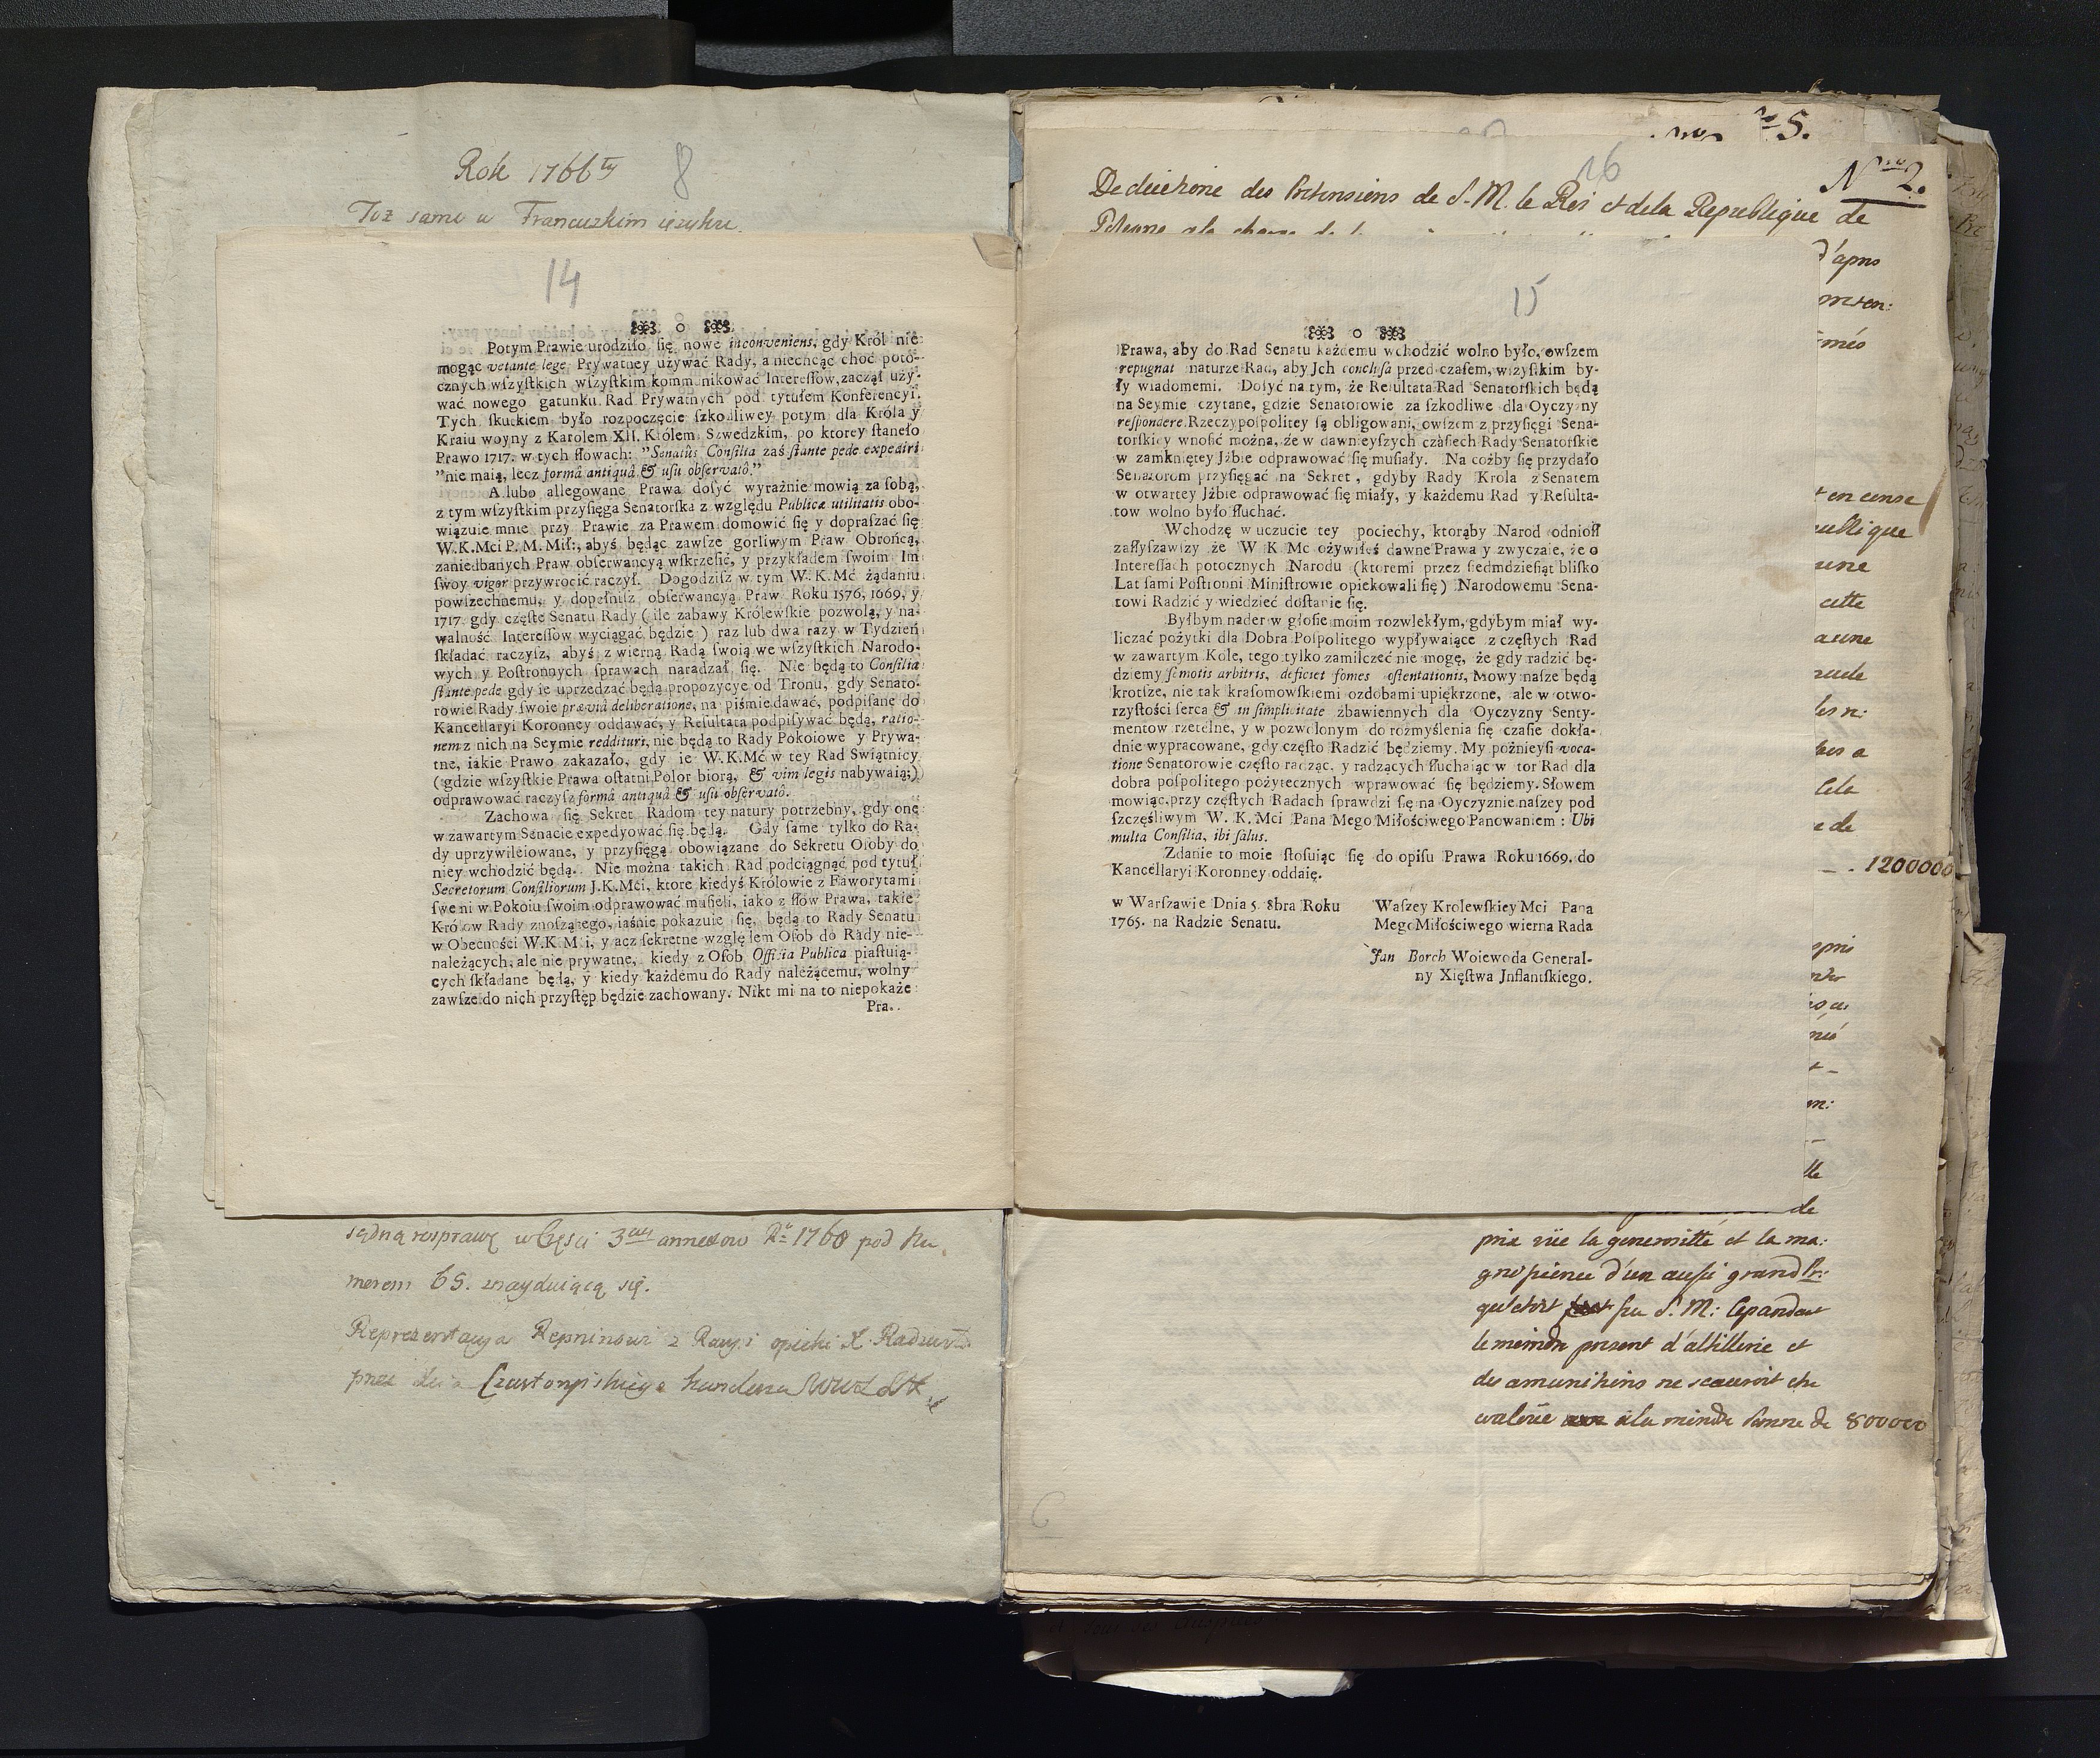 Rok 1766ty 8
Toż samo w Francuzkim ięzyku.
14
Potym Prawie urodziło ſię nowe inconveniens, gdy Król nie
mogąc vetante lege Prywatney używać Rady, a niechcąc choć poto-
cznych wſzyſtkich wſzyſtkim kommunikować Intereſſow, zaczął uży-
wać nowego gatunku Rad Prywatnych pod tytułem Konferencyi.
Tych ſkutkiem było rozpoczęcie ſzkodliwey potym dla Króla y
Kraiu woyny z Karolem XII. Królem Szwedzkim, po ktorey ſtaneło
Prawo 1717. w tych ſłowach: "Senatûs Conſilia zaś ſtante pede expediri
"nie maią, lecz formâ antiquâ & uſu obſervatô."
A lubo allegowane Prawa doſyć wyraźnie mowią za ſobą,
z tym wſzyſtkim przyſięga Senatorſka z względu Publicæ utilitatis obo-
wiązuie mnie przy Prawie za Prawem domowić ſię y dopraſzać ſię
W.K.Mci P. M. Mił:, abyś będąc zawſze gorliwym Praw Obrońcą,
zaniedbanych Praw obſerwancyą wſkrzeſić, y przykładem ſwoim Im
ſwoy vigor przywrocić raczył. Dogodziſz w tym W. K. Mć żądaniu
powſzechnemu, y dopełniſz obſerwancyą Praw Roku 1576, 1669, y
1717. gdy częſte Senatu Rady (ile zabawy Królewſkie pozwolą, y na-
walność Intereſſow wyciągać będzie ) raz lub dwa razy w Tydzień
ſkładać raczyſz, abyś z wierną Radą ſwoią we wſzyſtkich Narodo-
wych y Poſtronnych ſprawach naradzał ſię. Nie będą to Conſilia
ſtante pede gdy ie uprzedzać będą propozycye od Tronu, gdy Senato-
rowie Rady ſwoie præviâ deliberatione, na piśmie dawać, podpiſane do
Kancellaryi Koronney oddawać, y Reſultata podpiſywać będą, ratio-
nem z nich na Seymie reddituri, nie będą to Rady Pokoiowe y Prywa-
tne, iakie Prawo zakazało, gdy ie W.K.Mć w tey Rad Swiątnicy
(gdzie wſzyſtkie Prawa oſtatni Polor biorą, & vim legis nabywaią;)
odprawować raczyſz formâ antiquâ & uſu obſervatô.
Zachowa ſię Sekret Radom tey natury potrzebny, gdy one
w zawartym Senacie expedyować ſię będą. Gdy ſame tylko do Ra-
dy uprzywileiowane, y przyſięgą obowiązane do Sekretu Oſoby do
niey wchodzić będą. Nie można takich Rad podciągnąć pod tytuł
Secretorum Conſiliorum J.K.Mci, ktore kiedyś Królowie z Faworytami
ſwemi w Pokoiu ſwoim odprawować muſieli, iako z ſłow Prawa, takie
Królow Rady znoſzącego, iaśnie pokazuie ſię, będą to Rady Senatu
w Obecności W.K.Mci, y acz ſekretne względem Oſob do Rady nie-
należących, ale nie prywatne, kiedy z Oſob Officia Publica piaſtuią-
cych ſkładane będą, y kiedy każdemu do Rady należącemu, wolny
zawſze do nich przyſtęp będzie zachowany. Nikt mi na to niepokaże
Pra-
sądną rosprawę w Części annexow Ru 1760 pod Nu
merem 65. znayduiącą się.
Reprezentacya Repninowi z Racyi opieki X.
przez Czartoryiskiego
5.
Nro 2.
16
Deductione des Pretensions de S. M. le Roi et de la Republique de
d'apres
15
Prawa, aby do Rad Senatu każdemu wchodzić wolno było, owſzem
repugnat naturze Rad, aby Jch concluſa przed czaſem, wſzyſtkim by-
ły wiadomemi. Doſyć na tym, że Reſultata Rad Senatorſkich będą
na Seymie czytane, gdzie Senatorowie za ſzkodliwe dla Oyczyzny
reſpondere Rzeczypoſpolitey ſą obligowani, owſzem z przyſięgi Sena-
torſkiey wnoſić można, że w dawnieyſzych czàſiech Rady Senatorſkie
w zamkniętey Jźbie odprawować ſię muſiały. Na cożby ſię przydało
Senatorom przyſięgać na Sekret, gdyby Rady Krola z Senatem
w otwartey Jźbie odprawować ſię miały, y każdemu Rad y Reſulta-
tow wolno było ſłuchać.
Wchodzę w uczucie tey pociechy, ktorąby Narod odnioſł
zaſłyſzawſzy że W K Mc ożywiłeś dawne Prawa y zwyczaie, że o
Intereſſach potocznych Narodu (ktoremi przez ſiedmdzieſiąt bliſko
Lat ſami Poſtronni Miniſtrowie opiekowali ſię) Narodowemu Sena-
towi Radzić y wiedzieć doſtanie ſię.
Byłbym nader w głoſie moim rozwlekłym, gdybym miał wy-
liczać pożytki dla Dobra Poſpolitego wypływaiące z częſtych Rad
w zawartym Kole, tego tylko zamilczeć nie mogę, że gdy radzić bę-
dziemy ſemotis arbitris, deficiet fomes oſtentationis, Mowy naſze będą
krotſze, nie tak kraſomowſkiemi ozdobami upiękrzone, ale w otwo-
rzyſtości ſerca & in ſimplicitate zbawiennych dla Oyczyzny Senty-
mentow rzetelne, y w pozwolonym do rozmyślenia ſię czaſie dokła-
dnie wypracowane, gdy częſto Radzić będziemy. My poźnieyſi voca-
tione Senatorowie częſto radząc, y radzących ſłuchaiąc w tor Rad dla
dobra poſpolitego pożytecznych wprawować ſię będziemy. Słowem
mowiąc, przy częſtych Radach ſprawdzi ſię na Oyczyznie naſzey pod
ſzczęśliwym W. K. Mci Pana Mego Miłościwego Panowaniem: Ubi
multa Conſilia, ibi ſalus.
Zdanie to moie ſtoſuiąc ſię do opiſu Prawa Roku 1669. do
Kancellaryi Koronney oddaię.
w Warſzawie Dnia 5. 8bra Roku
1765. na Radzie Senatu.
Waſzey Krolewſkiey Mci Pana
Mego Miłościwego wierna Rada
Jan Borch Woiewoda General-
ny Xięſtwa Jnflantſkiego.
une
cette
1200000
de
prix vüe la generositté et la ma:
d'un aussi grand
S. M: Cependant
le moindre present d'altillerie et
des amunitions ne scauroit etre
evaluée a la moindre somme de 800000